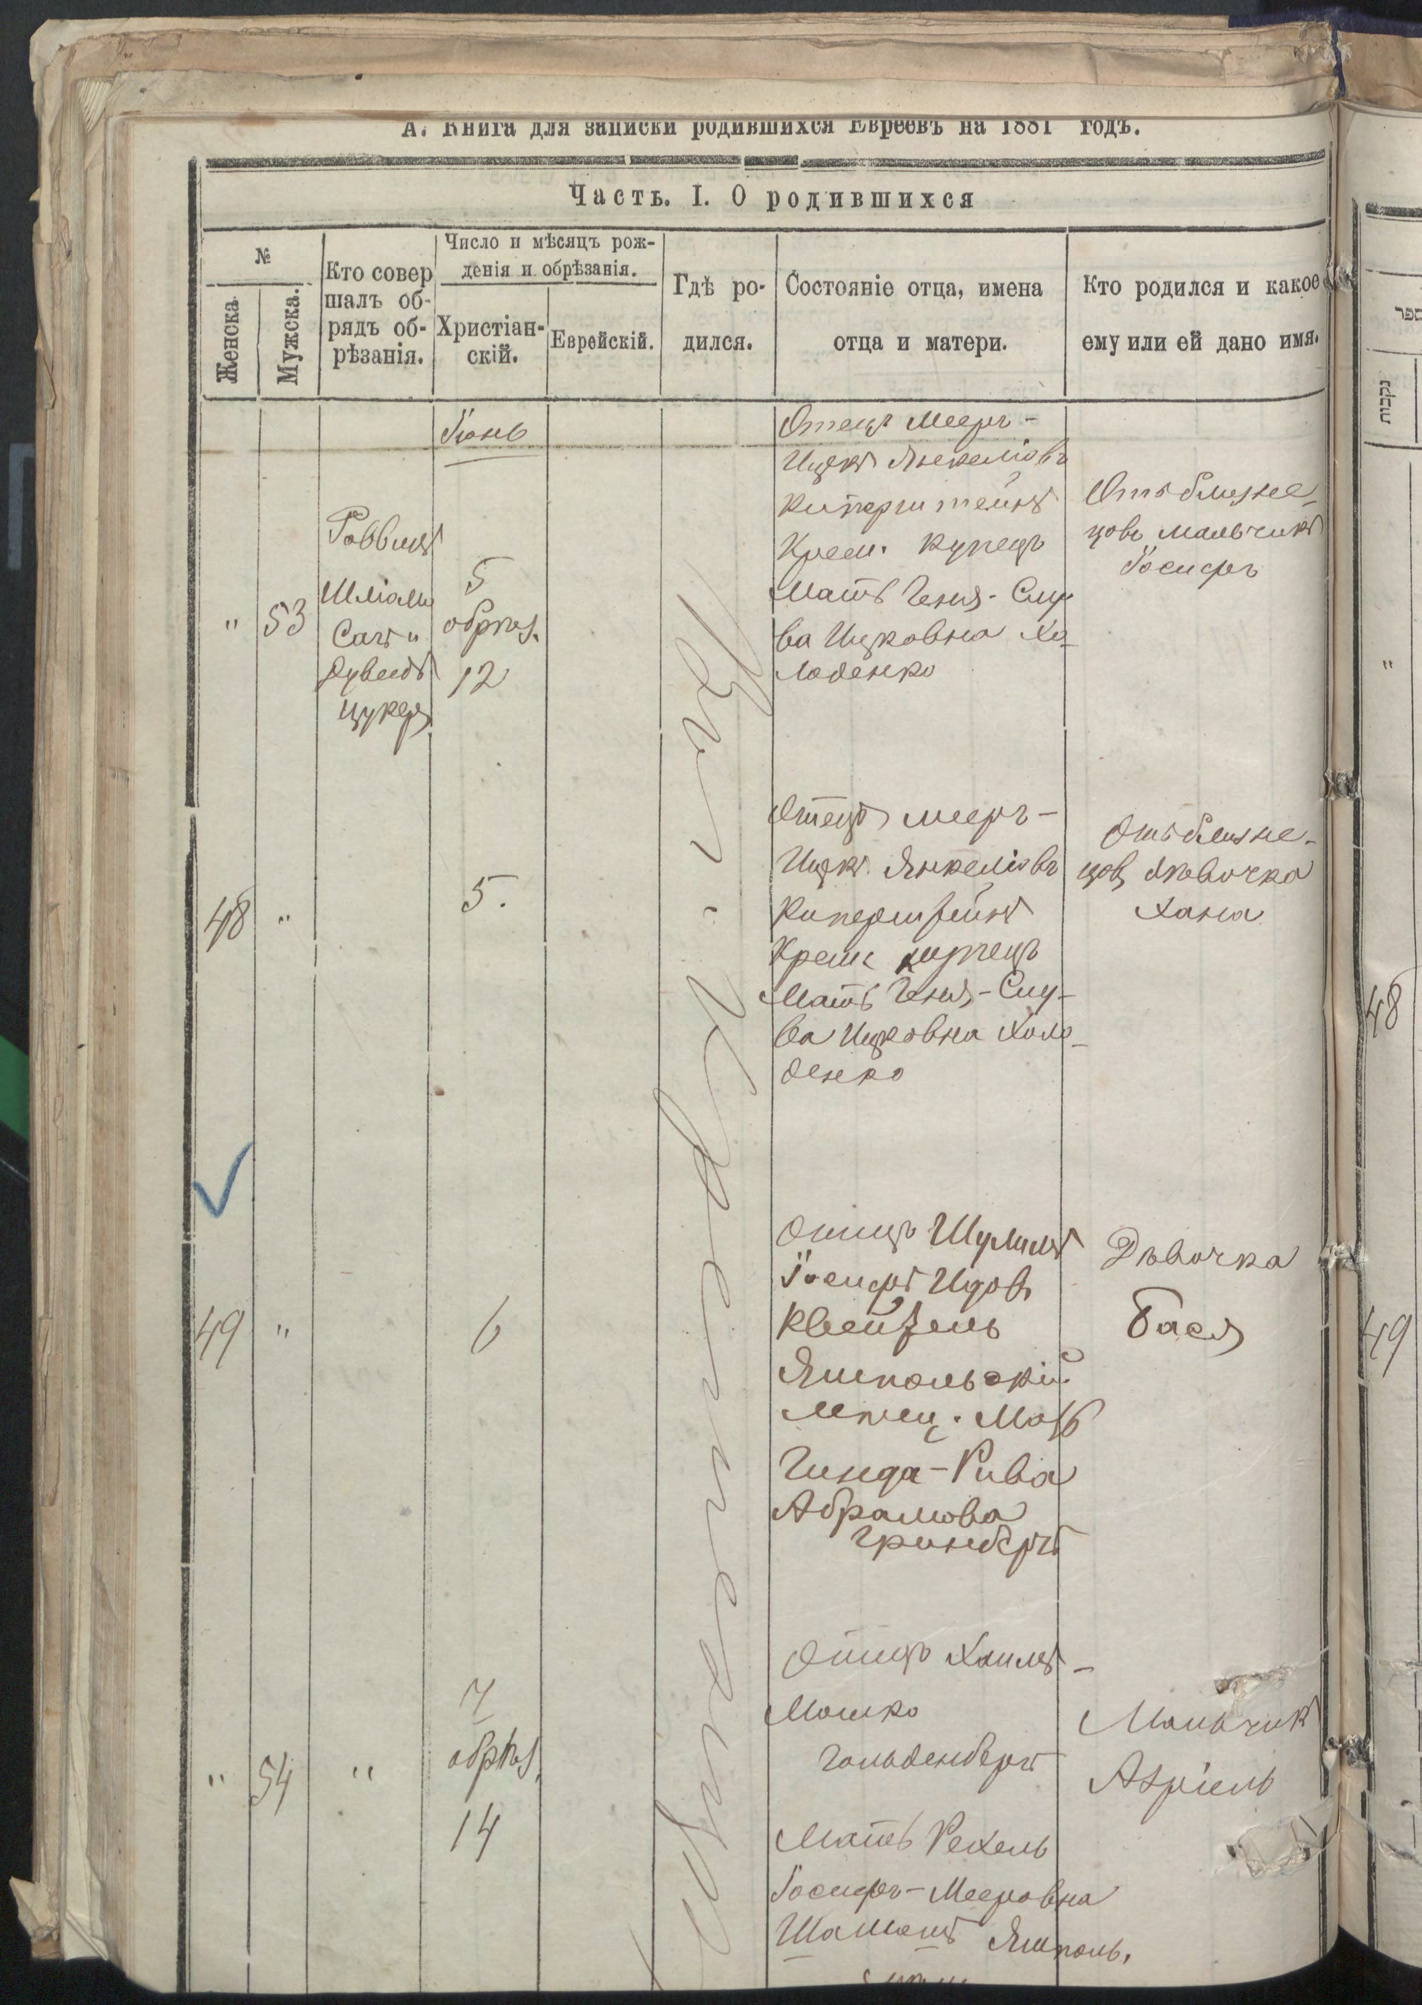 А. Книга для записки родившихся Евреевъ на 1881 годъ.
Часть. I. О родившихся
№
Женска.
Мужска.
Кто совер
шалъ об-
рядъ об-
рѣзанія.
Число и мѣсяцъ рож-
денія и обрѣзанія.
Христіан-
скій.
Еврейскій.
Гдѣ ро-
дился.
Состояніе отца, имена
отца и матери.
Кто родился и какое
ему или ей дано имя.
Іюнь
"
53
Раввинъ
Дувидъ
Цукеръ
5
обрѣз.
12
Отецъ Мееръ-
Ицко Янкеліовъ
Куперштейнъ
Крем. Купецъ
Мать Геня-Слу
ва Ицковна Хо-
лоденко
Отъ близне-
цовъ мальчикъ
Іосифъ
48
"
5.
Отецъ Мееръ-
Ицко Янкеліовъ
Куперштейнъ
Крем. купецъ
Мать Геня-Слу-
ва Ицковна Холо-
денко
Отъ близне-
цовъ дѣвочка
Хана
49
"
6
Отецъ Шулимъ
Іосифъ
Ямпольскій
мѣщ. Мать
Гинда-Рива
Абрамова
Гринбергъ
Дѣвочка
Бася
"
54
"
7
обрѣз.
14
Отецъ Хаимъ-
Мошко
Гольденбергъ
Мать Рехель
Іосифъ-Мееровна
Ямполь.
Мальчикъ
Азріель
ספר
נקבות
"
48
49